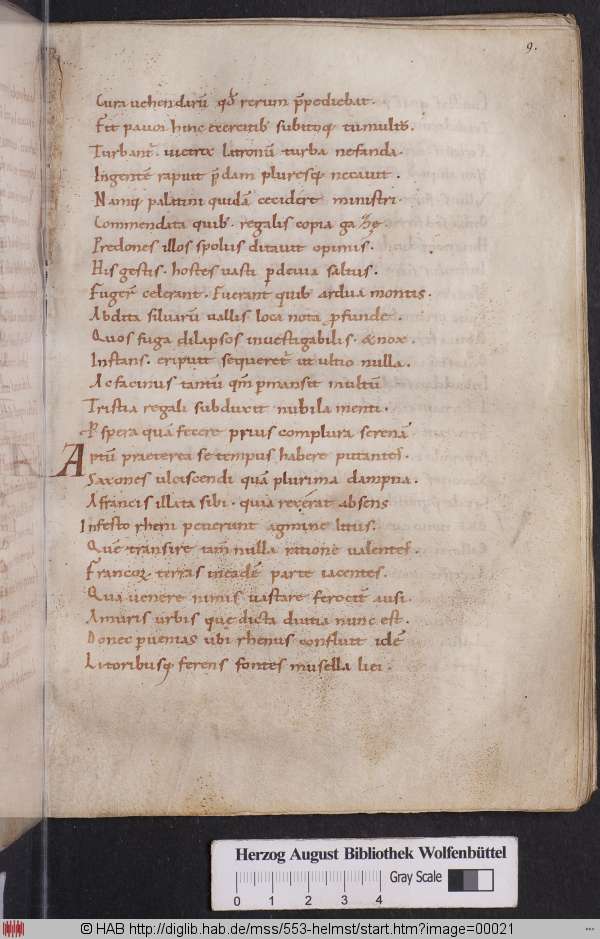 9.
Cura uehendarū qđ rerum p̄pediebat.
Fit pauor hinc exercitib; subitoq; tumultu.
Turbant᷑. uictrix latronū turba nefanda.
Ingentē rapuit p̄dam pluresq; necauit.
Namq; palatini quidā cecidere ministri.
Commendata quib; regalis copia gazę.
Predones illos spoliis ditauit opimis.
His gestis. hostes uasti p̱ deuia saltus.
Fuger̄ celerant. Fuerant quib; ardua montis.
Abdita siluarū uallis loca nota p̱fundę.
Quos fuga dilapsos inuestigabilis. & nox.
Instans. eripuit sequeret᷑ ut ultio nulla.
Ac facinus tantū qm̄ p̱mansit multū
Tristia regali subduxit nubila menti.
Pspera quā fecere prius complura serenā
Aptū praeterea se tempus habere putantes.
Saxones ulciscendi quā plurima dampna.
A francis illata sibi. quia rex erat absens
Infesto rheni petierunt agmine litus.
Quē transire tam̄ nulla ratione ualentes.
Francoꝝ terras in eadē parte iacentes.
Qua uenere nimis uastare ferocit̄ ausi.
A muris urbis quę dicta diuitia nunc est.
Donec p̱uenias ubi rhenus confluit idē
Litoribusq; ferens fontes musella liei.
Herzog August Bibliothek Wolfenbüttel
0 1 2 3 4 Gray Scale
© HAB http://diglib.hab.de/mss/553-helmst/start.htm?image=00021